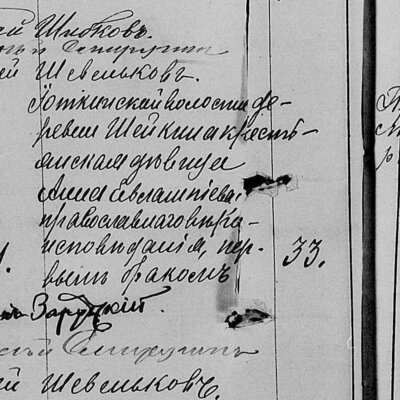 ай Шивковъ.
ей Шевельковъ.
Готкинской волости де-
ревни Шейкина кресть-
янская дѣвица
Анна Евлампіева,
православнаго вѣро-
исповѣданія, пер-
вымъ бракомъ
33.
Заруцкій.
ей Шевельковъ.